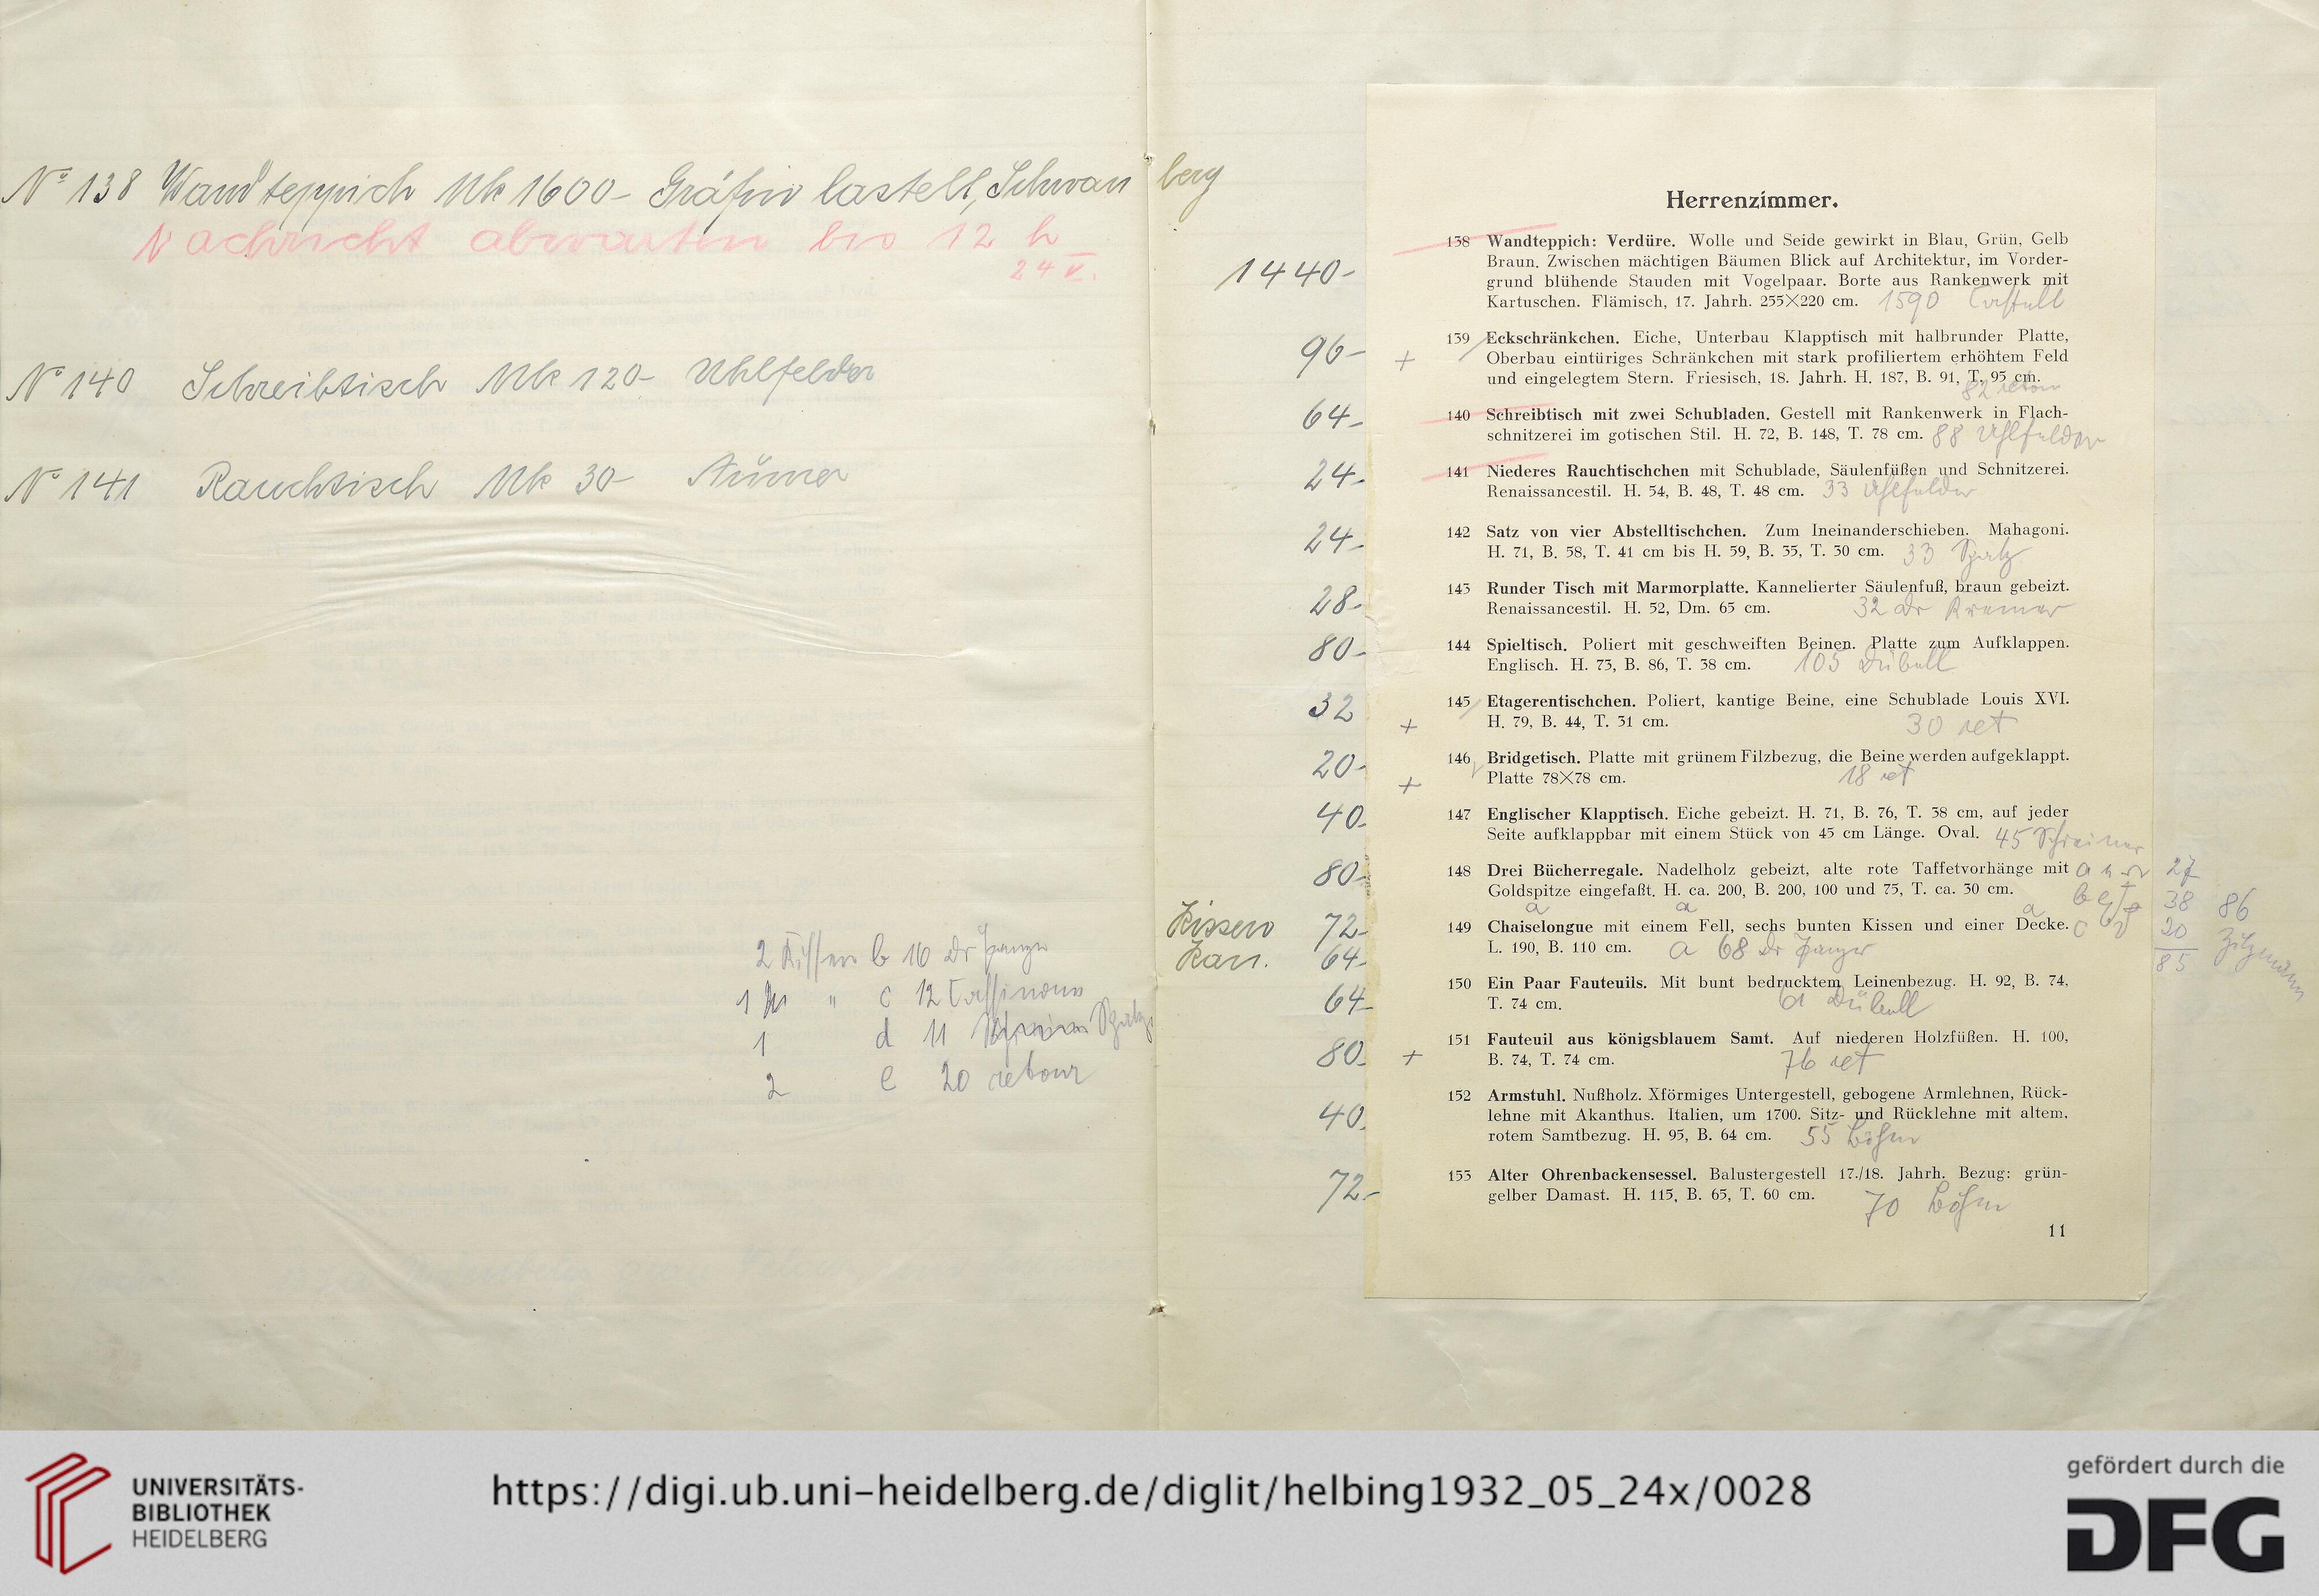 No 138 Wandteppich Mk 1600- Gräfin Castell, Schwanberg
Nachricht abwarten bis 12 h
24 V.
No 140 Schreibtisch Mk 120- Uhlfelder
No 141 Rauchtisch Mk 30-
2 Kissen b 16 Dr
1 " c 12
1 d 11
2 e 20 retour
1440-
96-
64-
24-
24-
28-
80-
32
20-
40-
80-
Kissen 72-
64-
64-
80-
40-
72-
Herrenzimmer.
138 Wandteppich: Verdüre. Wolle und Seide gewirkt in Blau, Grün, Gelb
Braun. Zwischen mächtigen Bäumen Blick auf Architektur, im Vorder-
grund blühende Stauden mit Vogelpaar. Borte aus Rankenwerk mit
Kartuschen. Flämisch, 17. Jahrh. 255×220 cm. 1590 Castell
139 Eckschränkchen. Eiche, Unterbau Klapptisch mit halbrunder Platte,
+ Oberbau eintüriges Schränkchen mit stark profiliertem erhöhtem Feld
und eingelegtem Stern. Friesisch, 18. Jahrh. H. 187, B. 91, T. 95 cm.
82 retour
140 Schreibtisch mit zwei Schubladen. Gestell mit Rankenwerk in Flach-
schnitzerei im gotischen Stil. H. 72, B. 148, T. 78 cm. 88 Uhlfelder
141 Niederes Rauchtischchen mit Schublade, Säulenfüßen und Schnitzerei.
Renaissancestil. H. 54, B. 48, T. 48 cm. 33 Uhlfelder
142 Satz von vier Abstelltischchen. Zum Ineinanderschieben. Mahagoni.
H. 71, B. 58, T. 41 cm bis H. 59, B. 35, T. 30 cm. 33 Spatz
143 Runder Tisch mit Marmorplatte. Kannelierter Säulenfuß, braun gebeizt.
Renaissancestil. H. 52, Dm. 65 cm. 32 Dr Kremer
144 Spieltisch. Poliert mit geschweiften Beinen. Platte zum Aufklappen.
Englisch. H. 73, B. 86, T. 38 cm. 105 Dübell
145 Etagerentischchen. Poliert, kantige Beine, eine Schublade Louis XVI.
+ H. 79, B. 44, T. 31 cm. 30 ret
146 Bridgetisch. Platte mit grünem Filzbezug, die Beine werden aufgeklappt.
+ Platte 78×78 cm. 18 ret
147 Englischer Klapptisch. Eiche gebeizt. H. 71, B. 76, T. 38 cm, auf jeder
Seite aufklappbar mit einem Stück von 45 cm Länge. Oval. 45 Schreiner
148 Drei Bücherregale. Nadelholz gebeizt, alte rote Taffetvorhänge mit a 27
Goldspitze eingefaßt. H. ca. 200, B. 200, 100 und 75, T. ca. 30 cm. b 38 86
a a a
149 Chaiselongue mit einem Fell, sechs bunten Kissen und einer Decke. c 20
L. 190, B. 110 cm. a 68 Dr
85
150 Ein Paar Fauteuils. Mit bunt bedrucktem Leinenbezug. H. 92, B. 74,
T. 74 cm. 61 Dübell
151 Fauteuil aus königsblauem Samt. Auf niederen Holzfüßen. H. 100,
+ B. 74, T. 74 cm. 76 ret
152 Armstuhl. Nußholz. Xförmiges Untergestell, gebogene Armlehnen, Rück-
lehne mit Akanthus. Italien, um 1700. Sitz- und Rücklehne mit altem,
rotem Samtbezug. H. 95, B. 64 cm. 55 Böhm
153 Alter Ohrenbackensessel. Balustergestell 17./18. Jahrh. Bezug: grün-
gelber Damast. H. 115, B. 65, T. 60 cm. 70 Böhm
11
UNIVERSITÄTS-
BIBLIOTHEK
HEIDELBERG
https://digi.ub.uni-heidelberg.de/diglit/helbing1932_05_24x/0028
gefördert durch die
DFG